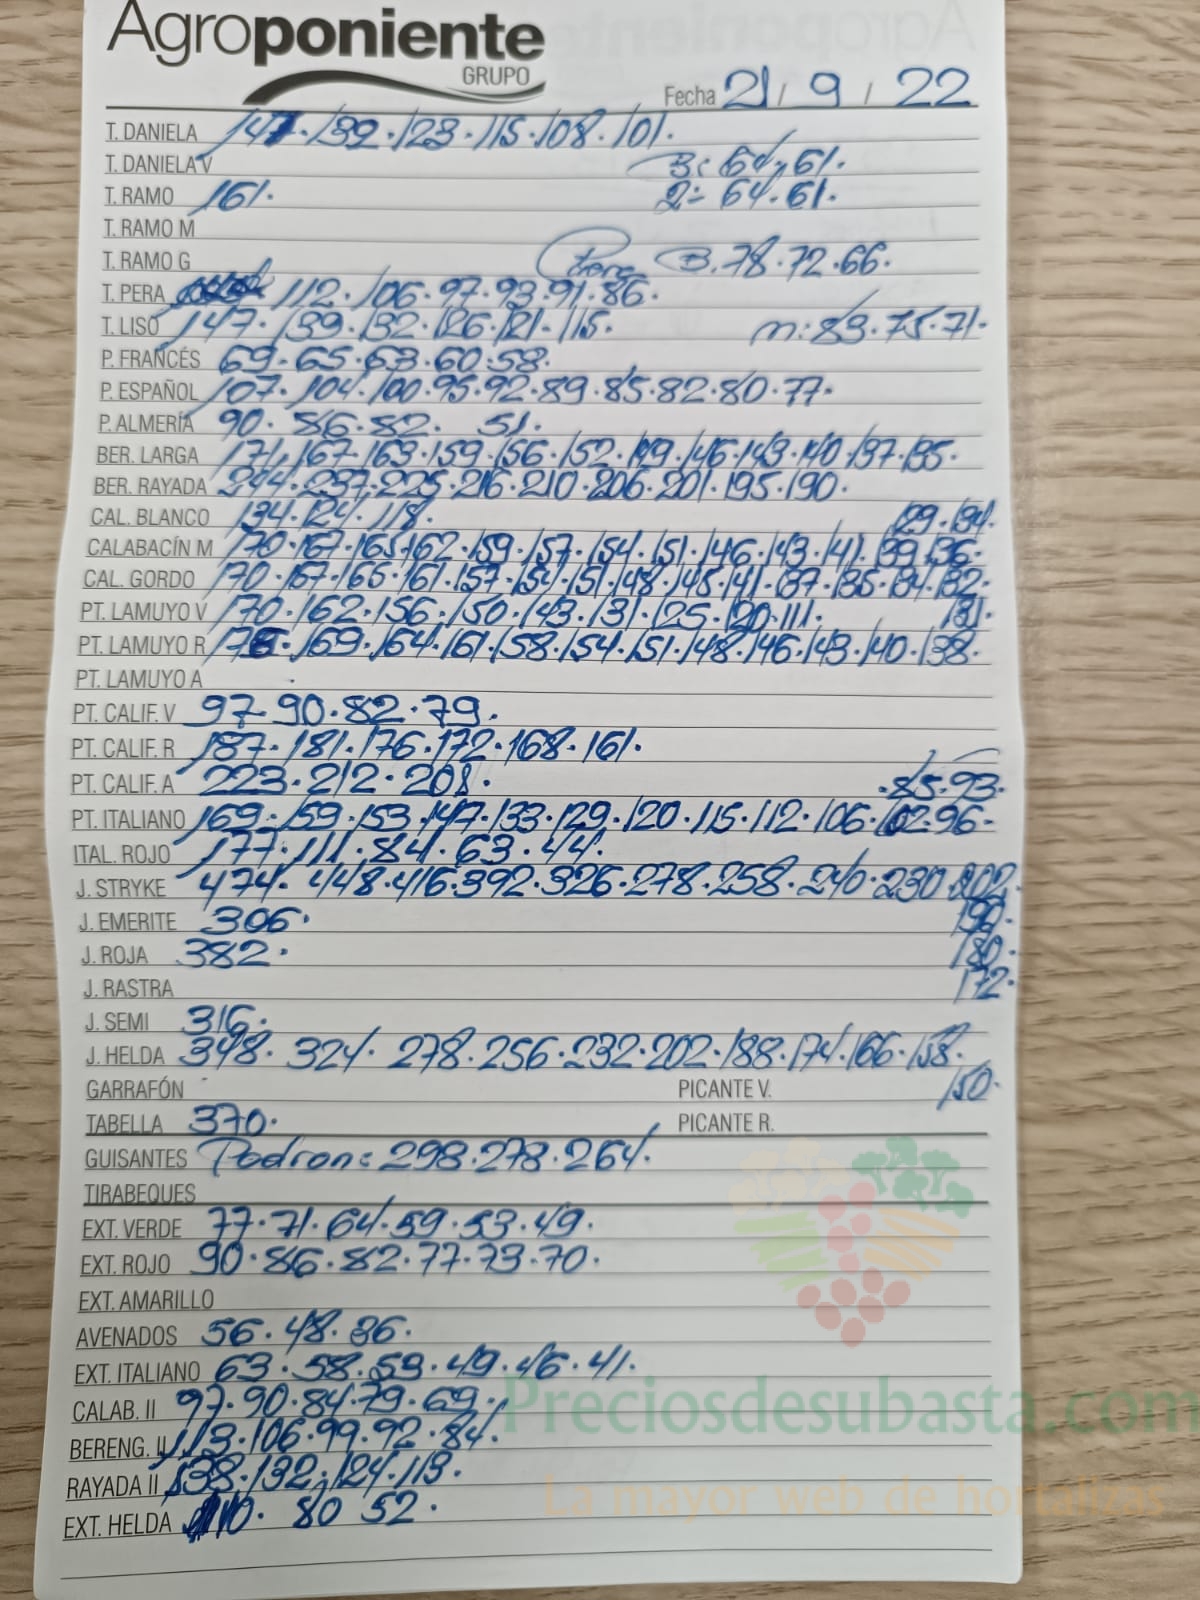 Agroponiente
GRUPO
Fecha 21 / 9 / 22
T. DANIELA 147. 132. 123. 115. 108. 101.
T. DANIELA V B: 64. 61.
T. RAMO 161. 2: 64. 61.
T. RAMO M
T. RAMO G Pera B. 78. 72. 66.
T. PERA 112. 106. 97. 93. 91. 86.
T. LISO 147. 139. 132. 126. 121. 115. m: 83. 75. 71.
P. FRANCÉS 69. 65. 63. 60. 58.
P. ESPAÑOL 107. 104. 100. 95. 92. 89. 85. 82. 80. 77.
P. ALMERÍA 90. 86. 82. 51.
BER. LARGA 171. 167. 163. 159. 156. 152. 149. 146. 143. 140. 137. 135.
BER. RAYADA 244. 237. 225. 216. 210. 206. 201. 195. 190.
CAL. BLANCO 134. 124. 118. 129. 134.
CALABACÍN M 170. 167. 165. 162. 159. 157. 154. 151. 146. 143. 141. 139. 136.
CAL. GORDO 170. 167. 165. 161. 157. 154. 151. 148. 145. 141. 137. 135. 134. 132.
PT. LAMUYO V 170. 162. 156. 150. 143. 131. 125. 120. 111. 131.
PT. LAMUYO R 176. 169. 164. 161. 158. 154. 151. 148. 146. 143. 140. 138.
PT. LAMUYO A
PT. CALIF. V 97. 90. 82. 79.
PT. CALIF. R 187. 181. 176. 172. 168. 161.
PT. CALIF. A 223. 212. 208. . 85. 93.
PT. ITALIANO 169. 159. 153. 147. 133. 129. 120. 115. 112. 106. 102. 96.
ITAL. ROJO 177. 111. 84. 63. 44.
J. STRYKE 474. 448. 416. 392. 326. 278. 258. 240. 230. 202.
J. EMERITE 306. 190.
J. ROJA 382. 180.
J. RASTRA 172.
J. SEMI 316.
J. HELDA 348. 324. 278. 256. 232. 202. 188. 174. 166. 158.
GARRAFÓN PICANTE V. 150.
TABELLA 370. PICANTE R.
GUISANTES Padron: 298. 278. 264.
TIRABEQUES
EXT. VERDE 77. 71. 64. 59. 53. 49.
EXT. ROJO 90. 86. 82. 77. 73. 70.
EXT. AMARILLO
AVENADOS 56. 48. 36.
EXT. ITALIANO 63. 58. 53. 49. 46. 41.
CALAB. II 97. 90. 84. 79. 69.
BERENG. II 113. 106. 99. 92. 84.
RAYADA II 138. 132. 124. 113.
EXT. HELDA 110. 80 52.
Preciosdesubasta.com
La mayor web de hortalizas